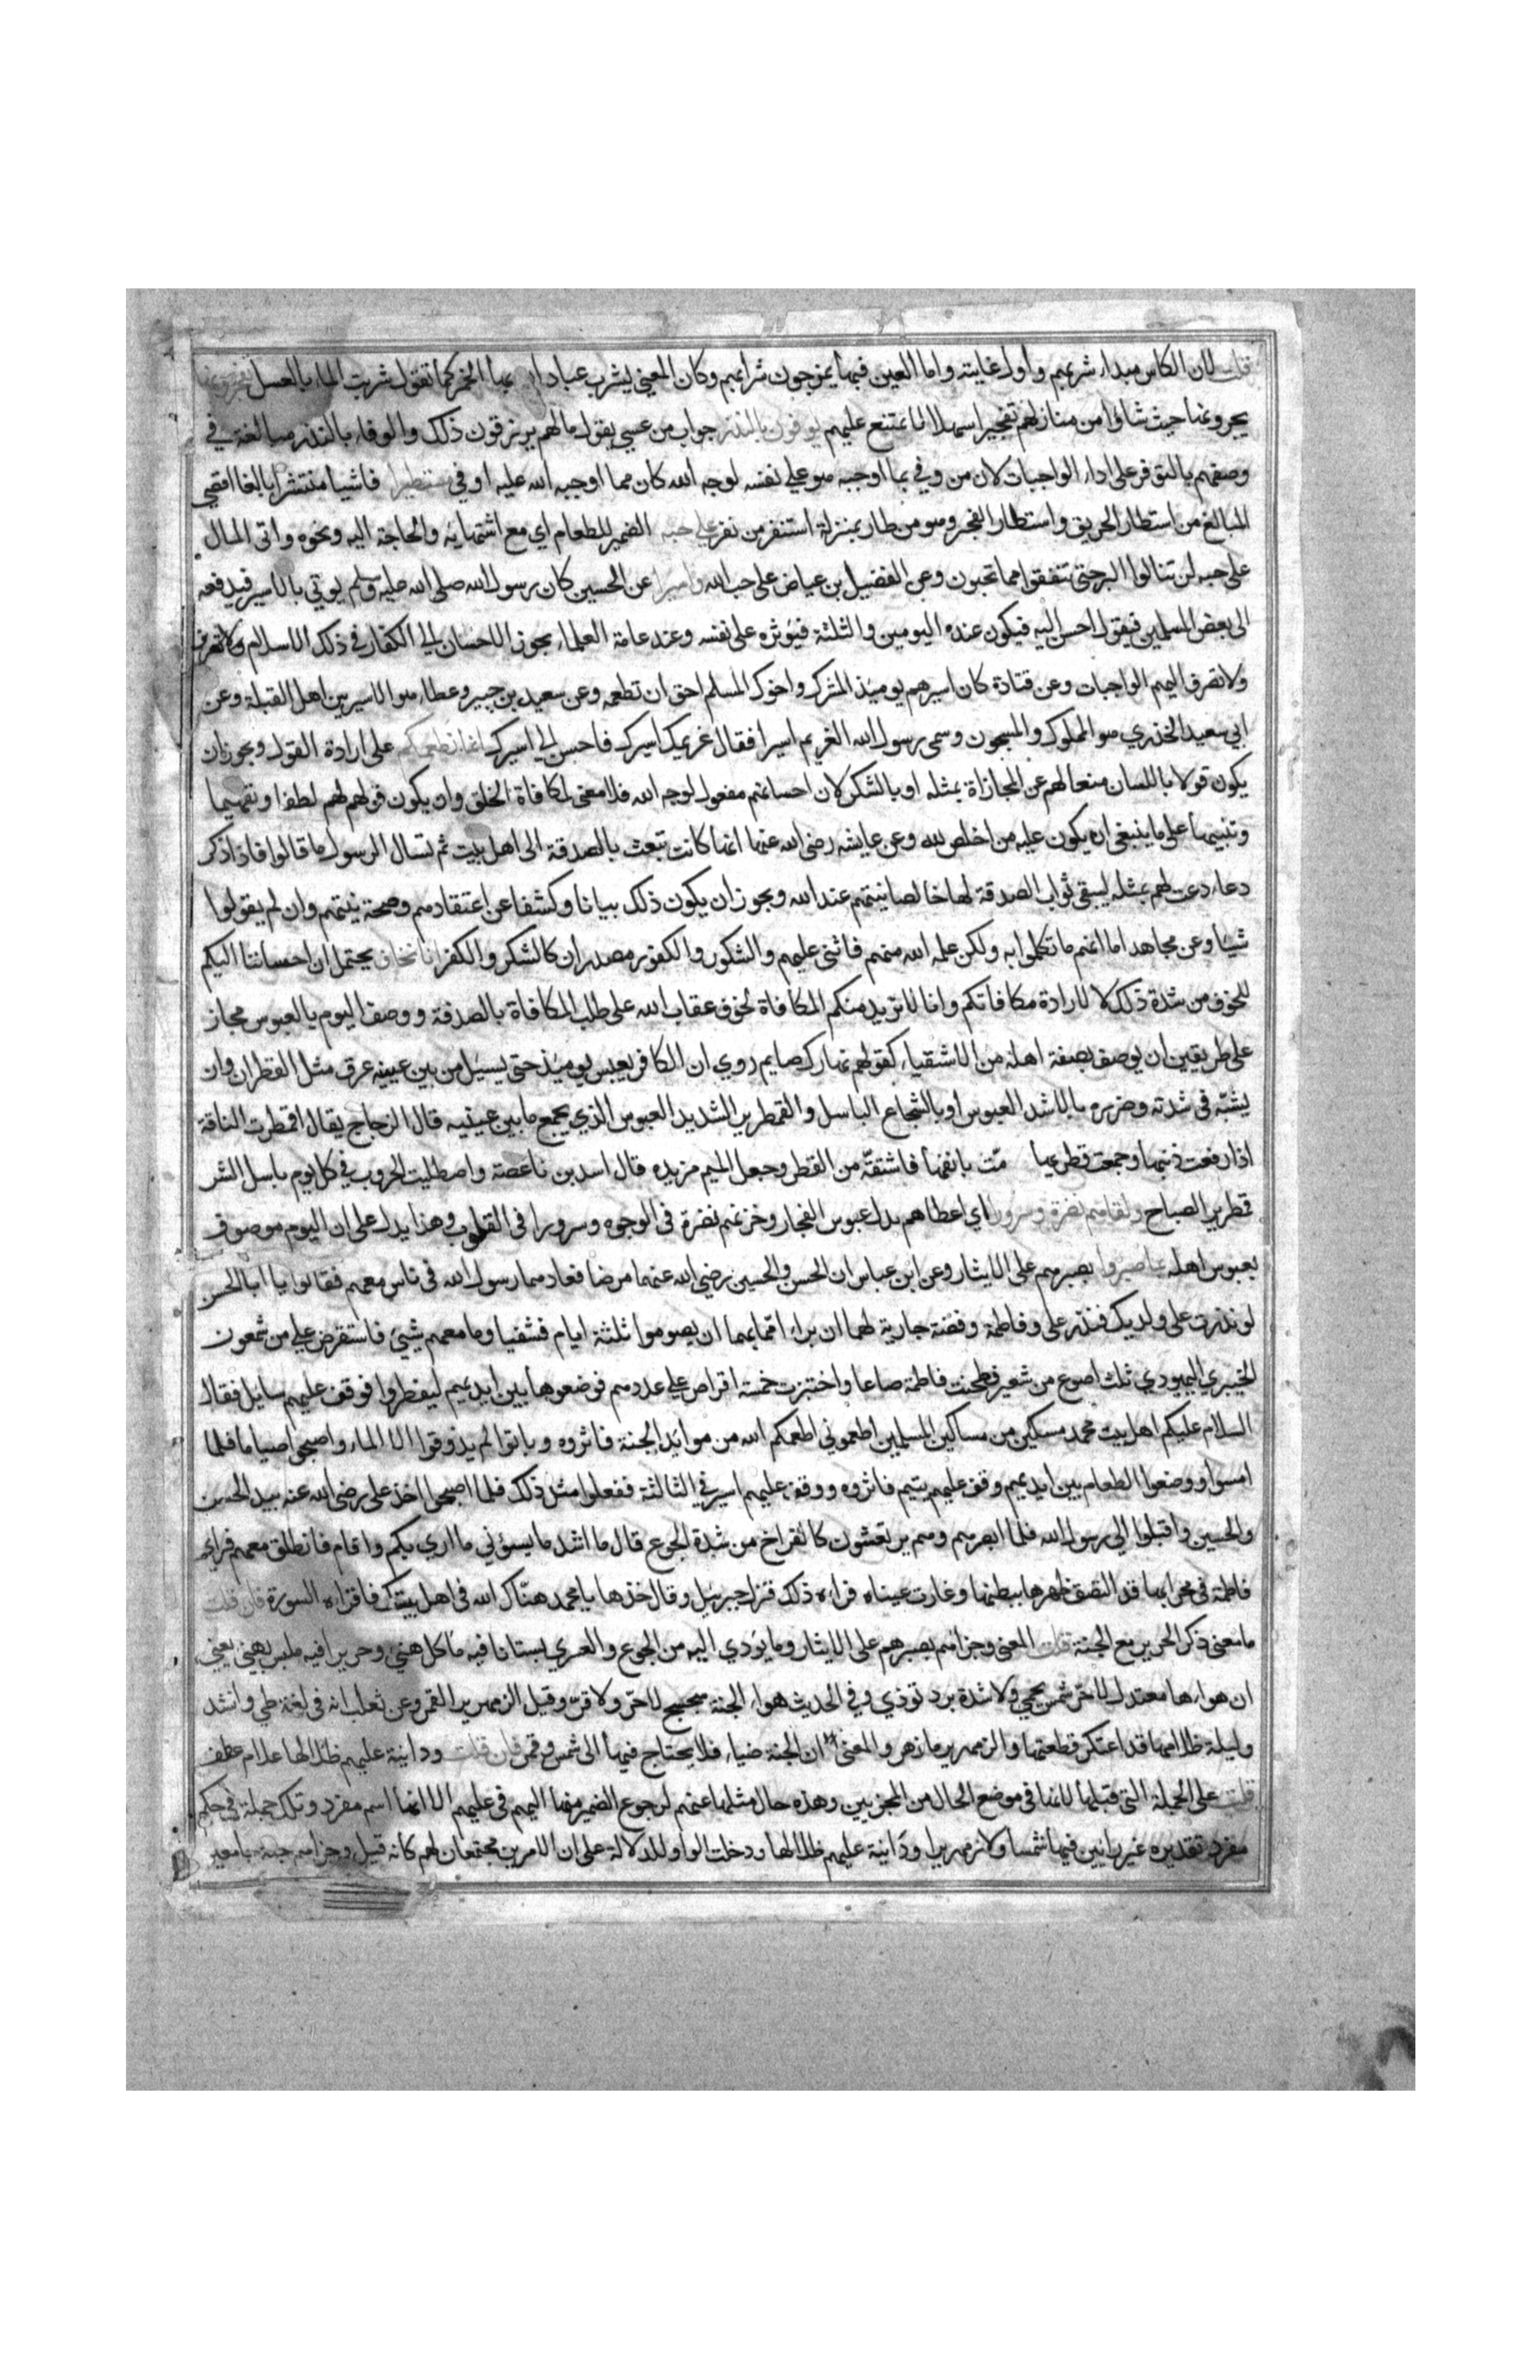 قلت لان الكاس مبداء شربهم واول غايته واما العين فبها يمزجون شرابهم وكان المعنى يشرب عباد الله بها الخمر كما تقول شربت الماء بالعسل يفجرونها
يجرونها حيث شاؤا من منازلهم تفجيرا سهلا لا يمتنع عليهم يوفون بالنذر جواب من عسى يقول ما لهم يرزقون ذلك والوفاء بالنذر مبالغة في
وصفهم بالتوفر على اداء الواجبات لان من وفى بما اوجبه هو على نفسه لوجه الله كان مما اوجبه الله عليه اوفى مستطيرا فاشيا منتشرا بالغا اقصى
المبالغ من استطار الحريق واستطار الفجر وهو من طار بمنزلة استنفر من نفر على حبه الضمير للطعام اي مع اشتهايه والحاجة اليه ونحوه واتى المال
على حبه لن تنالوا البر حتى تنفقوا مما تحبون وعن الفضيل بن عياض على حب الله واسيرا عن الحسين كان رسول الله صلى الله عليه وسلم يوتي بالاسير فيدفعه
الى بعض المسلمين فيقول احسن اليه فيكون عنده اليومين والثلثة فيؤثره على نفسه وعند عامة العلماء يجوز الاحسان الى الكفار في ذلك الاسلام ولا تصرف
ولا تصرف اليهم الواجبات وعن قتادة كان اسيرهم يوميذ المشرك واخوك المسلم احق ان تطعمه وعن سعيد بن جبير وعطاء هو الاسير من اهل القبلة وعن
ابي سعيد الخدري هو المملوك والمسجون وسمى رسول الله الغريم اسيرا فقال غريمك اسيرك فاحسن الى اسيرك انما نطعمكم على ارادة القول ويجوز ان
يكون قولا باللسان منعا لهم عن المجازاة بمثله او بالشكر لان احسانهم مفعول لوجه الله فلا معنى لمكافاة الخلق وان يكون قولهم لهم لطفا وتفهيما
وتنبيها على ما ينبغي ان يكون عليه من اخلص لله وعن عايشه رضي الله عنها انها كانت تبعث بالصدقة الى اهل بيت ثم تسال الرسول ما قالوا فاذا ذكر
دعاء دعت لهم بمثله ليبقى ثواب الصدقة لها خالصا نيتهم عند الله ويجوز ان يكون ذلك بيانا وكشفا عن اعتقادهم وصحة نيتهم وان لم يقولوا
شيئا وعن مجاهد اما انهم ما تكلموا به ولكن علمه الله منهم فاثنى عليهم والشكور والكفور مصدران كالشكر والكفر انا نخاف يحتمل ان احساننا اليكم
للخوف من شدة ذلك لا لارادة مكافاتكم وانا لا نريد منكم المكافاة لخوف عقاب الله على طلب المكافاة بالصدقة ووصف اليوم بالعبوس مجاز
على طريقين ان يوصف بصفة اهله من الاشقياء كقولهم نهارك صايم روي ان الكافر يعبس يوميذ حتى يسيل من بين عينيه عرق مثل القطران وان
يشبه في شدته وضرره بالاشد العبوس او بالشجاع الباسل والقمطرير الشديد العبوس الذي يجمع ما بين عينيه قال الزجاج يقال اقمطرت الناقة
اذا رفعت ذنبها وجمعت قطريها متت بانفها فاشتقه من القطر وجعل الميم مزيده قال اسد بن ناعصة واصطليت الحروب في كل يوم باسل الشر
قمطرير الصباح ولقاهم نضرة وسرورا اي اعطاهم بدل عبوس الفجار وخزنهم نضرة في الوجوه وسرورا في القلوب وهذا يدل على ان اليوم موصوف
بعبوس اهله بما صبروا بصبرهم على الايثار وعن ابن عباس ان الحسن والحسين رضي الله عنهما مرضا فعادهما رسول الله في ناس معهم فقالوا يا ابا الحسن
لو نذرت على ولديك فنذر علي وفاطمة وفضة جارية لهما ان براء امما بهما ان يصوموا ثلثة ايام فشفيا وما معهم شيئ فاستقرض علي من شمعون
الخيبري اليهودي ثلث اصوع من شعير فطحنت فاطمة صاعا واختبزت خمسة اقراص على عددهم فوضعوها بين ايديهم ليفطروا فوقف عليهم سايل فقال
السلام عليكم اهل بيت محمد مسكين من مساكين المسلمين اطعموني اطعمكم الله من موايد الجنة فاثروه وباتوا لم يذوقوا الا الماء واصبحوا صياما فلما
امسوا ووضعوا الطعام بين ايديهم وقف عليهم يتيم فاثروه ووقف عليهم اسير في الثالثة ففعلوا مثل ذلك فلما اصبحوا اخذ علي رضي الله عنه بيد الحسن
والحسين واقبلوا الى رسول الله فلما ابصرهم وهم يرتعشون كالفراخ من شدة الجوع قال ما اشد ما يسؤني ما اري بكم واقام فانطلق معهم فراى
فاطمة في محرابها قد التصق ظهرها ببطنها وغارت عيناه فراءه ذلك فنزل جبرئيل وقال خذها يا محمد هناك الله في اهل بيتك فاقراءه السورة فان قلت
ما معنى ذكر الحرير مع الجنة قلت المعنى وجزاهم بصبرهم على الايثار وما يؤدي اليه من الجوع والعري بستانا فيه ماكل هني وحريرا فيه ملبس بهي يعني
ان هواءها معتدل لا حر شمس يحمي ولا شدة برد توذي وفي الحديث هواء الجنة سجسج لا حر ولا قر وقيل الزمهرير القمر وعن ثعلب انه في لغة طي وانشد
وليلة ظلامها قد اعتكر قطعتها والزمهرير ما زهر والمعنى ان الجنة ضياء فلا يحتاج فيها الى شمس وقمر فان قلت ودانية عليهم ظلالها علام عطف
قلت على الجملة التي قبلها لانها في موضع الحال من المجزيين وهذه حال مثلها عنهم لرجوع الضمير منها اليهم في عليهم الا انها اسم مفرد وتلك جملة في حكم
مفرد تقديره غير رائين فيها شمسا ولا زمهريرا ودانية عليهم ظلالها ودخلت الواو للدلالة على ان الامرين مجتمعان لهم كانه قيل وجزاهم جنة جامعين